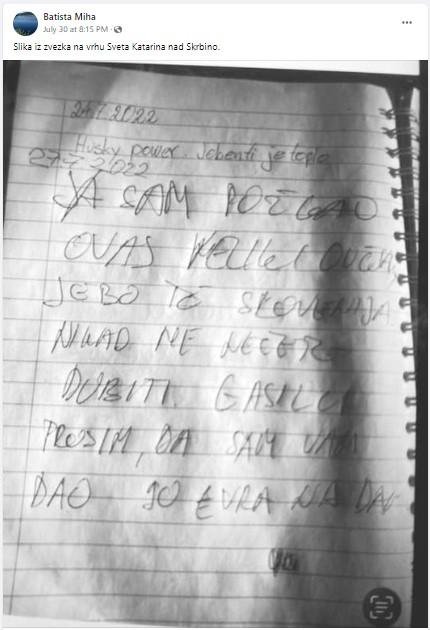 Batista Miha
July 30 at 8:15 PM ·
Slika iz zvezka na vrhu Sveta Katarina nad Skrbino.
24.7.2022
Husky power. Jebenti je toplo
27.7.2022
JA SAM POŽGAO
OVAJ VELIKI
JEBO TE
NIKAD NE NEČETE
DUBITI. GASILCI
PROSIM, DA SAM VAM
DAO 10 EVRA NA DAN